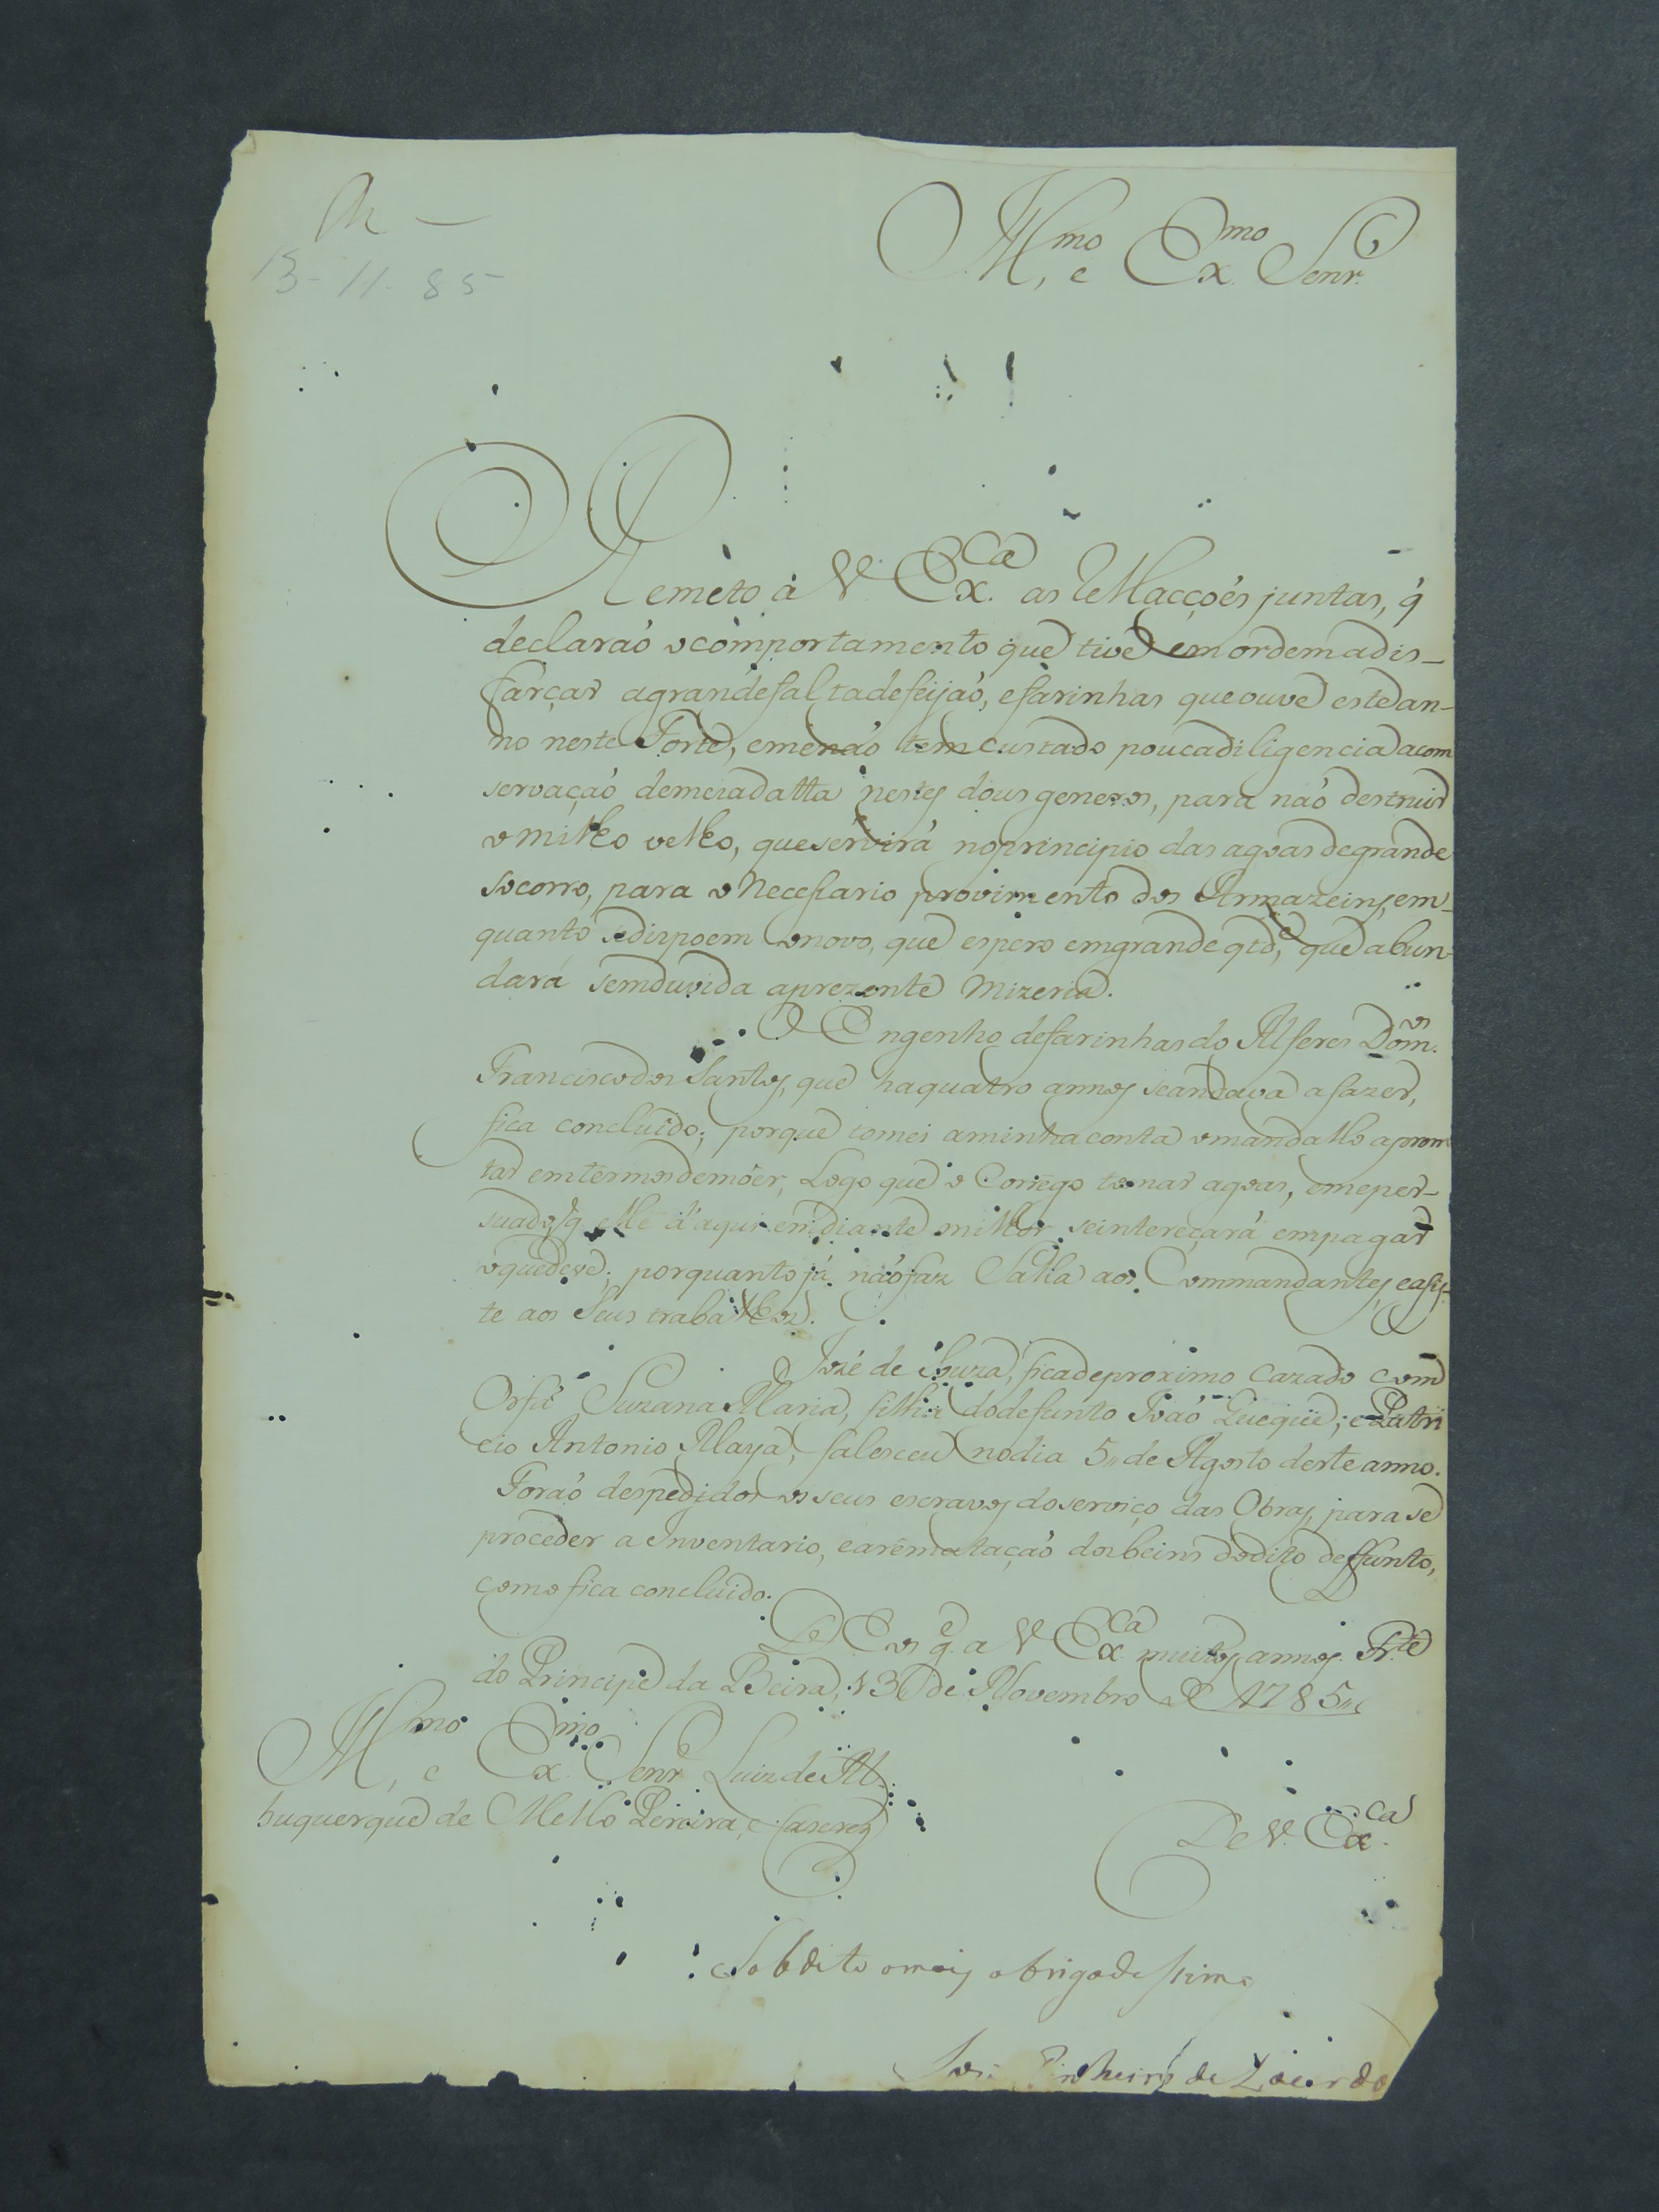 13-11-85
Illmo, e Exmo Senr.
Remeto a V. Exca. as Rellacçoés juntas, q̃
declaraó o comportamento que tive em ordem a dis-
farçar a grande falta de feijaó, e farinhas que ouve este an-
no neste Forte, e me naó tem custado pouca diligencia a com
servaçaó de meia datta nestes dous generos, para naó destruir
o milho velho, que servirá no principio das agoas de grande
socorro, para o Necessario provimento dos Armazeins, em-
quanto se dispoem o novo, que espero em grande qtde, que abun-
dará sem duvida a prezente Mizeria.
O Engenho de farinhas do Alferes Domos.
Francisco dos Santos, que ha quatro annos se andava a fazer,
fica concluido; porque tomei a minha conta o mandallo apron
tar em termos de móer, Logo que o Corrego tomar agoas, e me per-
suado q̃ elle d'aqui em diante milhor seintereçará em pagar
o que deve; porquanto já náo faz Salla aos Commandantes, e assis-
te aos Seus trabalhos.
Jozé de Souza, fica de proximo Cazado com
Orfã Suzana Maria, filha do defunto Joaó Guegue; e Patri
cio Antonio Maya, falesceu no dia 5,, de Agosto deste anno.
Foraó despedidos os seus escravos do serviço das Obras, para se
proceder a inventario, e arematação dos beins do dito deffunto,
como fica concluido.
Deos gde a V. Exca muitos annos. Fr.te
do Principe da Beira, 13 de Novembro de 1785,,
Illmo, e Exmo Senr Luiz de Al-
buquerque de Mello Pereira, e Caceres
De V. Exca.
Subdito o mais obrigadissimo
José Pinheiro de Lacerda